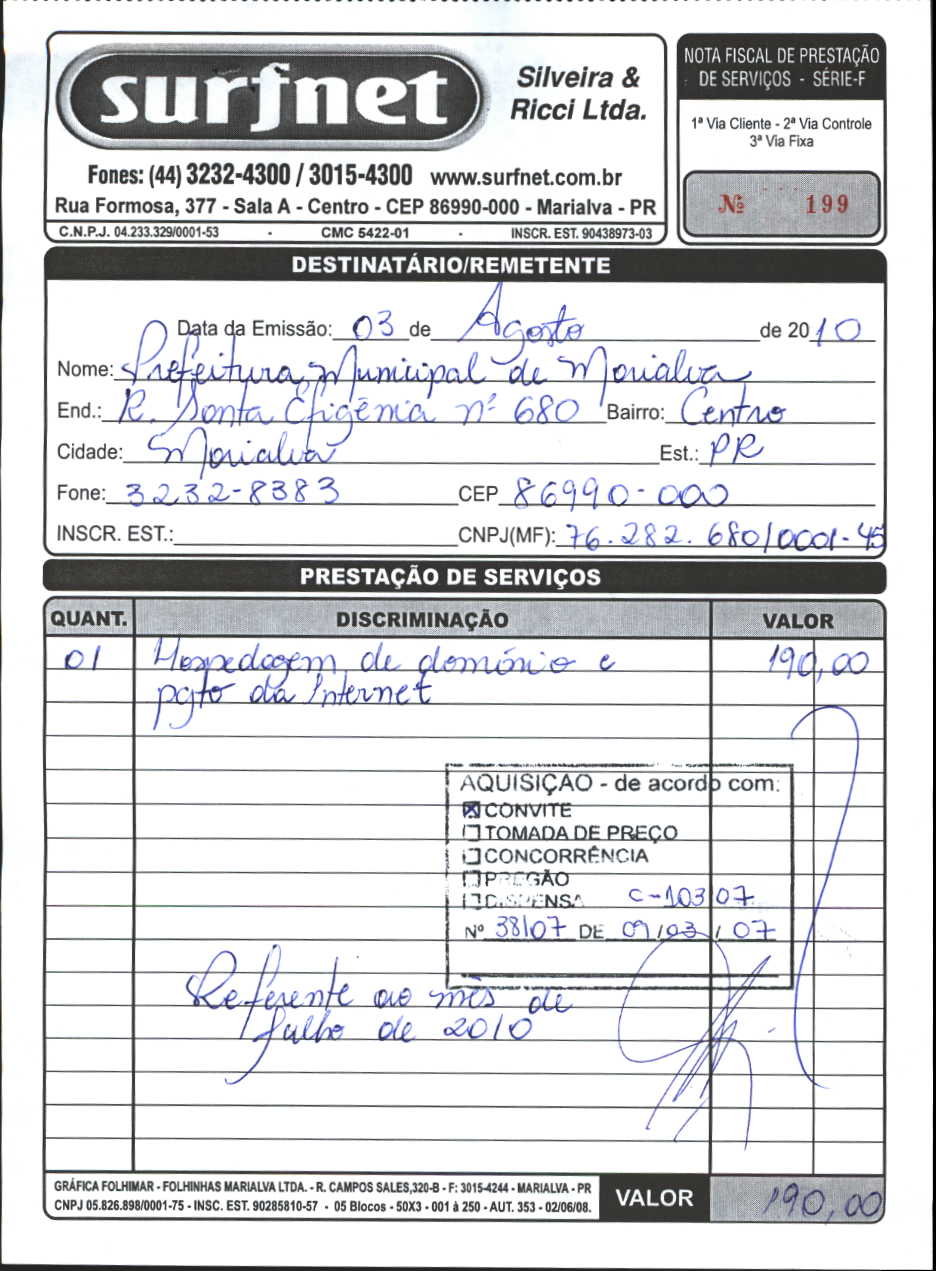 surfnet
Silveira &
Ricci Ltda.
Fones: (44) 3232-4300 / 3015-4300 www.surfnet.com.br
Rua Formosa, 377 - Sala A - Centro - CEP 86990-000 - Marialva - PR
C.N.P.J. 04.233.329/0001-53 - CMC 5422-01 - INSCR. EST. 90438973-03
NOTA FISCAL DE PRESTAÇÃO
DE SERVIÇOS - SÉRIE-F
1ª Via Cliente - 2ª Via Controle
3ª Via Fixa
Nº 199
DESTINATÁRIO/REMETENTE
Data da Emissão: 03 de Agosto de 2010
Nome: Prefeitura Municipal de Marialva
End.: R. Santa Efigênia nº 680 Bairro: Centro
Cidade: Marialva Est.: PR
Fone: 3232-8383 CEP 86990-000
INSCR. EST.: CNPJ(MF): 76.282.680/0001-45
PRESTAÇÃO DE SERVIÇOS
QUANT. DISCRIMINAÇÃO VALOR
01 Hospedagem de domínio e 190,00
pgto da Internet
AQUISIÇÃO - de acordo com:
CONVITE
TOMADA DE PREÇO
CONCORRÊNCIA
PREGÃO
DISPENSA C-103/07
Nº 38/07 DE 09/03/07
Referente ao mês de
Julho de 2010
GRÁFICA FOLHIMAR - FOLHINHAS MARIALVA LTDA. - R. CAMPOS SALES,320-B - F: 3015-4244 - MARIALVA - PR
CNPJ 05.826.898/0001-75 - INSC. EST. 90285810-57 - 05 Blocos - 50X3 - 001 à 250 - AUT. 353 - 02/06/08.
VALOR 190,00